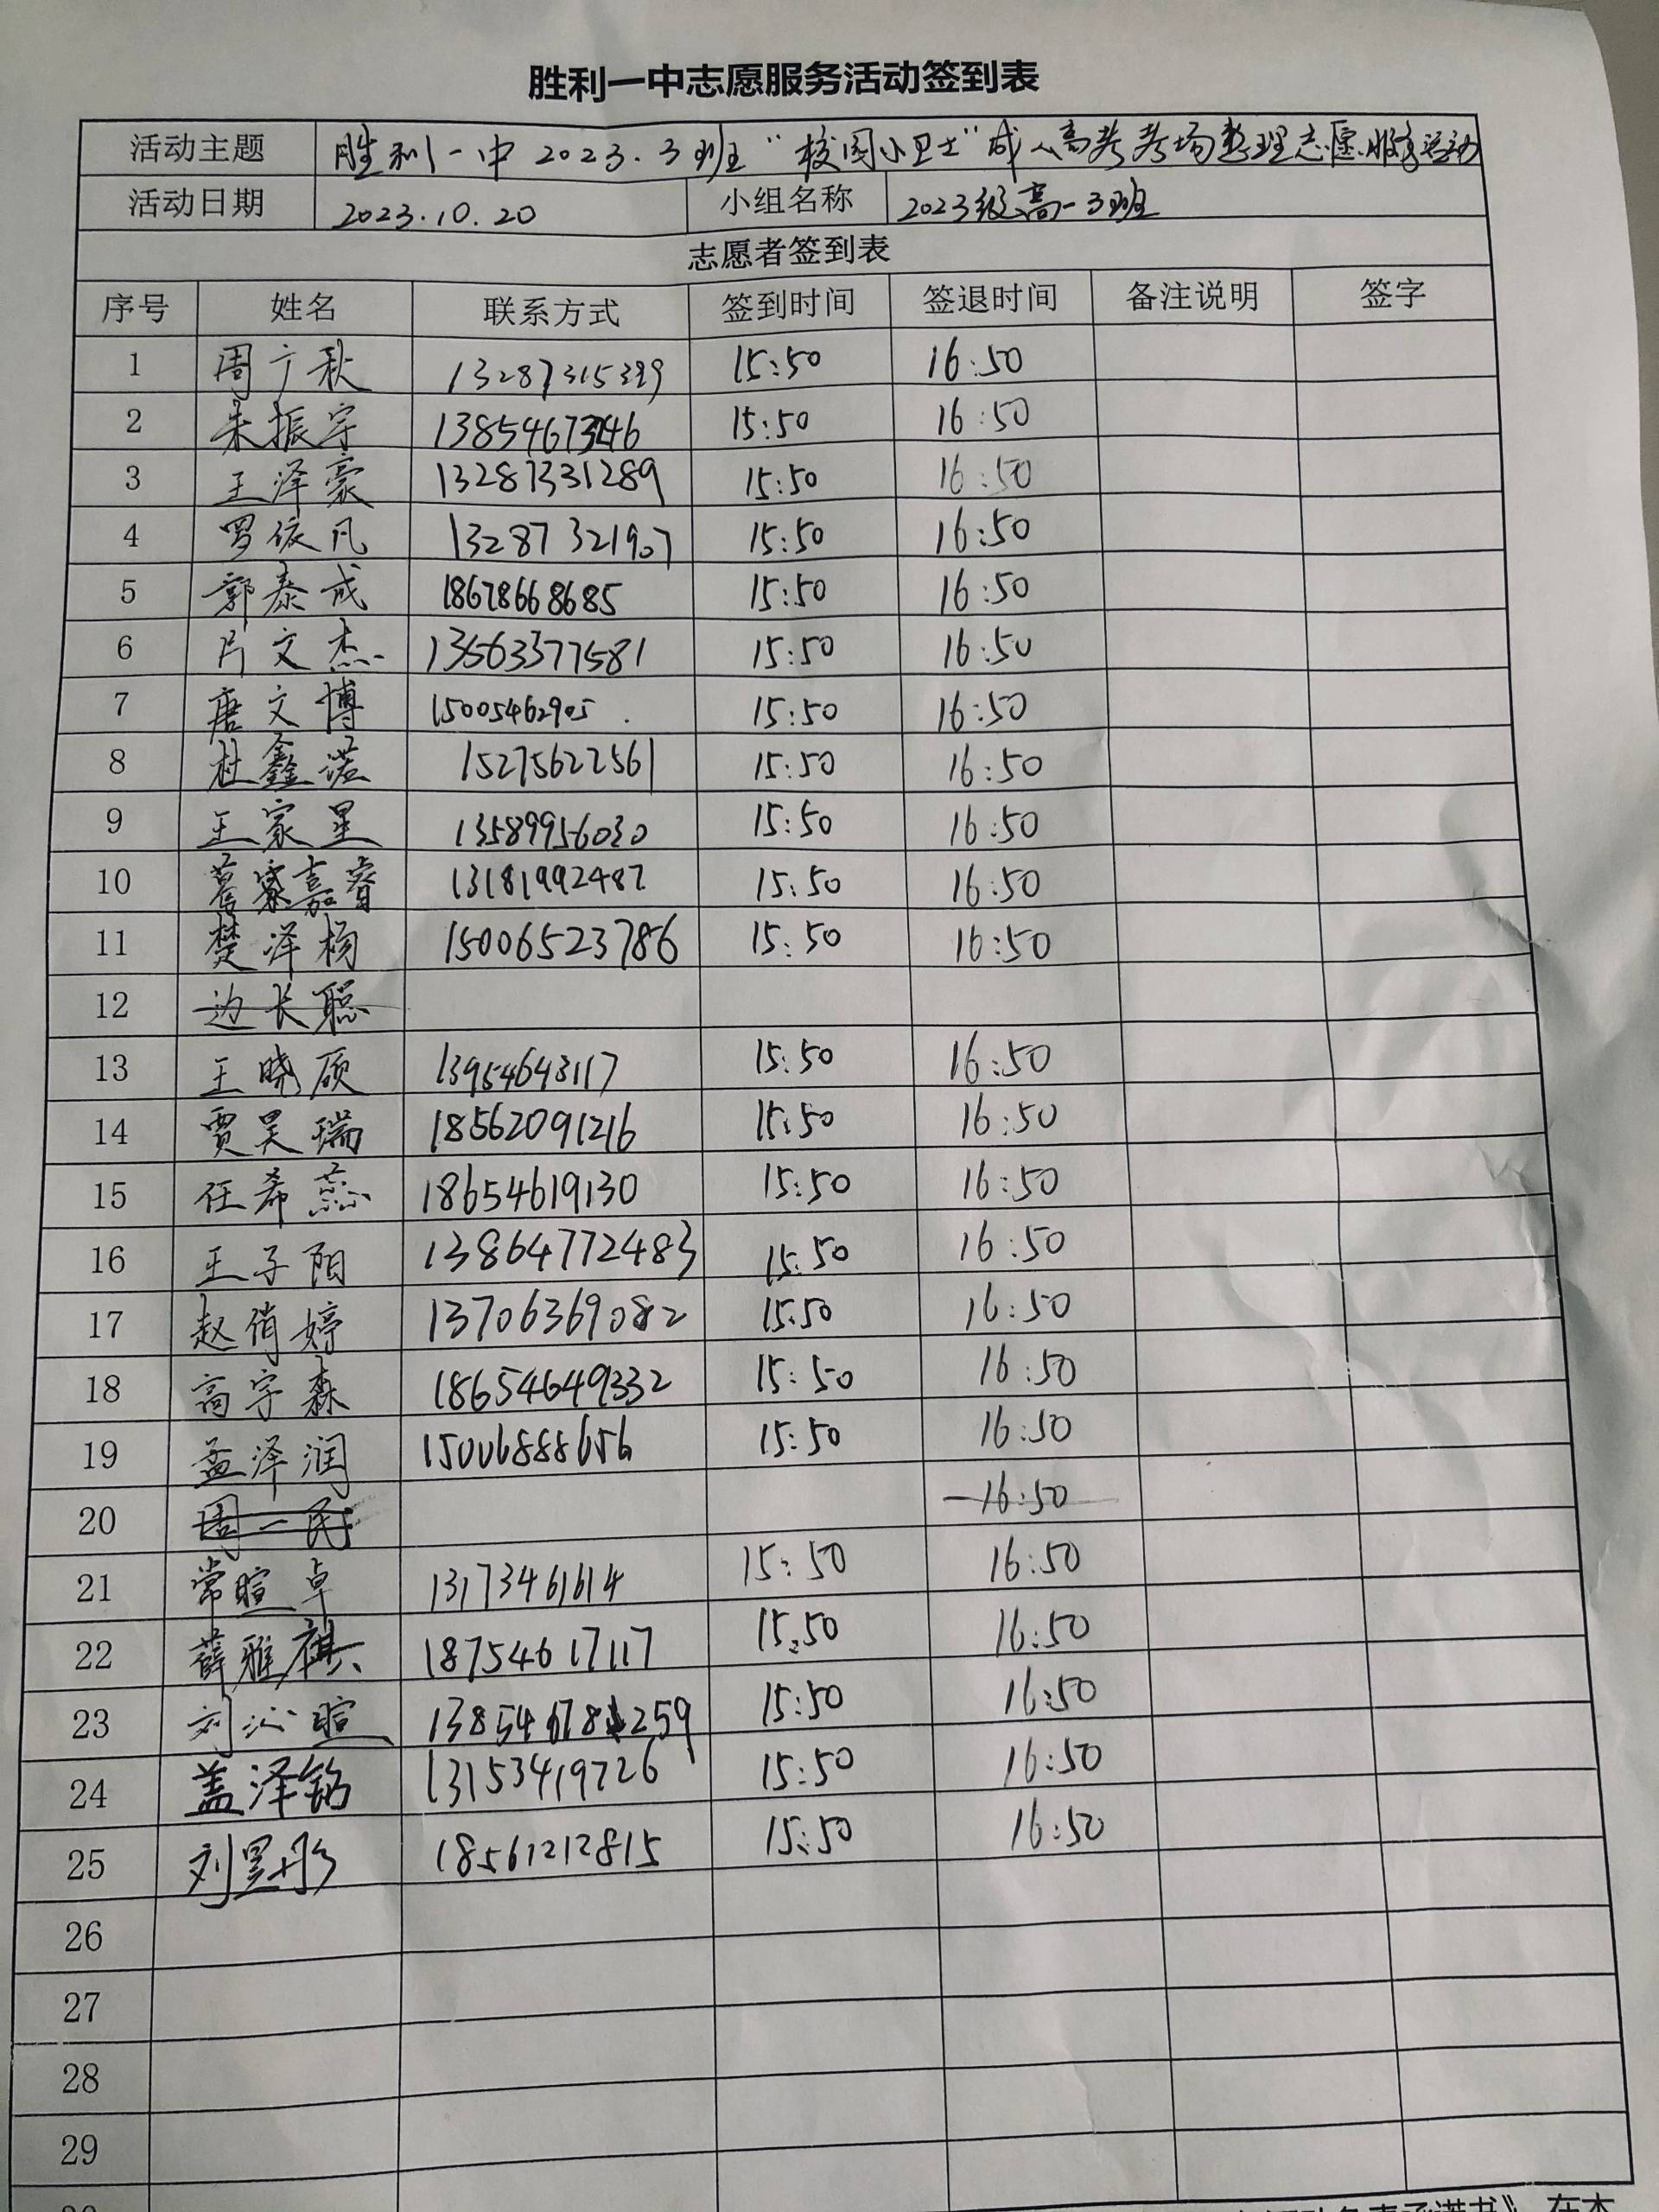 胜利一中志愿服务活动签到表
活动主题 胜利一中2023.3班“校园小卫士”成人高考考场整理志愿服务活动
活动日期 2023.10.20 小组名称 2023级高一3班
志愿者签到表
序号 姓名 联系方式 签到时间 签退时间 备注说明 签字
1 周广秋 13287315399 15:50 16:50
2 朱振宇 15:50 16:50
3 王泽豪 13287331289 15:50 16:50
4 罗依凡 13287321907 15:50 16:50
5 郭泰成 18678668685 15:50 16:50
6 文杰 13563377581 15:50 16:50
7 唐文博 15005462905 15:50 16:50
8 杜鑫诺 15275622561 15:50 16:50
9 王家星 13589956030 15:50 16:50
10 嘉睿 13181992487 15:50 16:50
11 楚泽杨 15006523786 15:50 16:50
12 边长聪
13 王晓硕 13954643117 15:50 16:50
14 贾昊瑞 18562091216 15:50 16:50
15 任希蕊 18654619130 15:50 16:50
16 王子阳 13864772483 15:50 16:50
17 赵俏婷 13706369082 15:50 16:50
18 高宇森 18654649332 15:50 16:50
19 孟泽润 15006888656 15:50 16:50
20 周一民 16:50
21 常暄卓 13173461614 15:50 16:50
22 薛雅祺 18754617117 15:50 16:50
23 刘沁暄 15:50 16:50
24 盖泽铭 13153419726 15:50 16:50
25 刘昱彤 18561212815 15:50 16:50
26
27
28
29